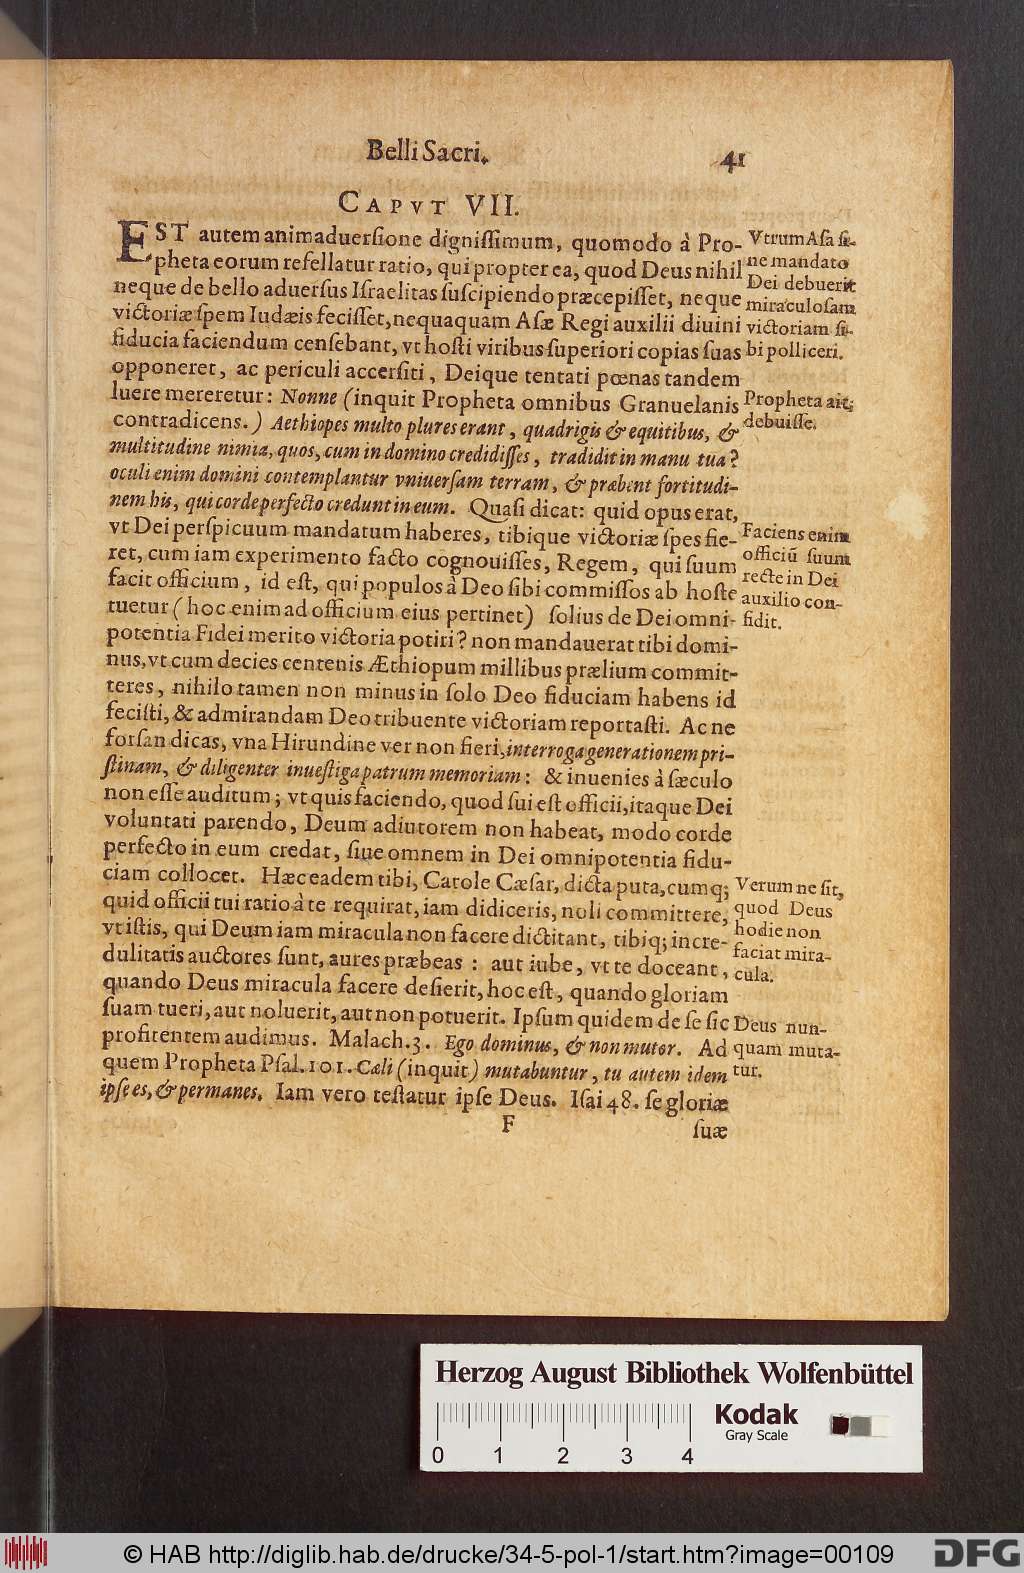 Belli Sacri. 41
CAPVT VII.
EST autem animaduersione dignissimum, quomodo à Pro-
pheta eorum refellatur ratio, qui propter ea, quod Deus nihil
neque de bello aduersus Israelitas suscipiendo præcepisset, neque
victoriæ spem Iudæis fecisset, nequaquam Asæ Regi auxilii diuini
fiducia faciendum censebant, vt hosti viribus superiori copias suas
opponeret, ac periculi accersiti, Deique tentati pœnas tandem
luere mereretur: Nonne (inquit Propheta omnibus Granuelanis
contradicens.) Aethiopes multo plures erant, quadrigis & equitibus, &
multitudine nimia, quos, cum in domino credidisses, tradidit in manu tua?
oculi enim domini contemplantur vniuersam terram, & præbent fortitudi-
nem his, qui corde perfecto credunt in eum. Quasi dicat: quid opus erat,
vt Dei perspicuum mandatum haberes, tibique victoriæ spes fie-
ret, cum iam experimento facto cognouisses, Regem, qui suum
facit officium, id est, qui populos à Deo sibi commissos ab hoste
tuetur (hoc enim ad officium eius pertinet) solius de Dei omni-
potentia Fidei merito victoria potiri? non mandauerat tibi domi-
nus, vt cum decies centenis Æthiopum millibus prælium commit-
teres, nihilo tamen non minus in solo Deo fiduciam habens id
fecisti, & admirandam Deo tribuente victoriam reportasti. Ac ne
forsan dicas, vna Hirundine ver non fieri, interroga generationem pri-
stinam, & diligenter inuestiga patrum memoriam: & inuenies à sæculo
non esse auditum; vt quis faciendo, quod sui est officii, itaque Dei
voluntati parendo, Deum adiutorem non habeat, modo corde
perfecto in eum credat, siue omnem in Dei omnipotentia fidu-
ciam collocet. Hæc eadem tibi, Carole Cæsar, dicta puta, cumq;
quid officii tui ratio à te requirat, iam didiceris, noli committere,
vt istis, qui Deum iam miracula non facere dictitant, tibiq; incre-
dulitatis auctores sunt, aures præbeas: aut iube, vt te doceant,
quando Deus miracula facere desierit, hoc est, quando gloriam
suam tueri, aut noluerit, aut non potuerit. Ipsum quidem de se sic
profitentem audimus. Malach. 3. Ego dominus, & non mutor. Ad
quem Propheta Psal. 101. Cæli (inquit) mutabuntur, tu autem idem
ipse es, & permanes. Iam vero testatur ipse Deus. Isai 48. se gloriæ
F suæ
Vtrum Asa si-
ne mandato
Dei debuerit
miraculosam
victoriam si-
bi polliceri.
Propheta ait;
debuisse.
Faciens enim
officiũ suum
recte in Dei
auxilio con-
fidit.
Verum ne sit,
quod Deus
hodie non
faciat mira-
cula.
Deus nun-
quam muta-
tur.
Herzog August Bibliothek Wolfenbüttel
Kodak
Gray Scale
0 1 2 3 4
© HAB http://diglib.hab.de/drucke/34-5-pol-1/start.htm?image=00109
DFG